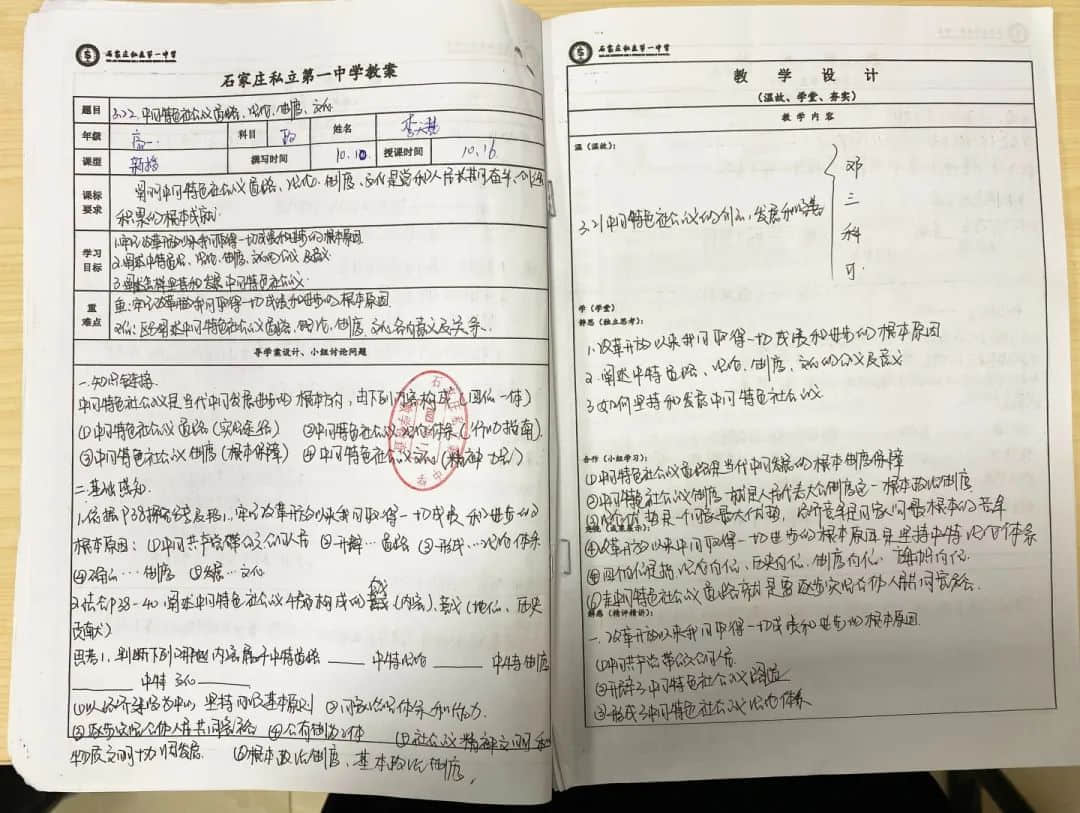 石家庄私立第一中学
石家庄私立第一中学教案
题目 3.2.2 中国特色社会主义道路、理论、制度、文化
年级 高一 科目 政 姓名
课型 新授 撰写时间 10.10 授课时间 10.16
课标要求 阐明中国特色社会主义道路、理论、制度、文化是党和人民长期奋斗、
积累的根本成就
学习目标 1.牢记改革开放以来我们取得一切成绩和进步的根本原因
2.阐述中特道路、理论、制度、文化的含义及意义
3.阐述怎样坚持和发展中国特色社会主义
重难点 重:牢记改革开放我们取得一切成绩和进步的根本原因
难:区分阐述中国特色社会主义道路、理论、制度、文化各自意义及关系
导学案设计、小组讨论问题
一.知识链接
中国特色社会主义是当代中国发展进步的根本方向,由下列内容构成(四位一体)
①中国特色社会主义道路(实现途径) ②中国特色社会主义理论体系(行动指南)
③中国特色社会主义制度(根本保障) ④中国特色社会主义文化(精神力量)
二.基础感知
1.依据P38 牢记改革开放以来我们取得一切成绩和进步的
根本原因:①中国共产党带领人民 ②开辟…道路 ③形成…理论体系
④确立…制度 ⑤发展…文化
2.结合P38-40,阐述中国特色社会主义4部构成的(内容)、意义(地位、历史
贡献)
思考1.判断下列哪些内容属于中特道路____中特理论____中特制度
____中特文化____
①以经济建设为中心,坚持四项基本原则 ②国家治理体系和能力
③逐步实现全体人民共同富裕 ④公有制为主体 ⑤社会主义精神文明和
物质文明协调发展 ⑥根本政治制度、基本政治制度
石家庄私立第一中学
教 学 设 计
(温故、学堂、夯实)
教 学 内 容
温(温故):
3.2.1 中国特色社会主义的创立、发展和完善
邓
三
科
习
学(学堂)
解惑(独立思考):
1.改革开放以来我们取得一切成绩和进步的根本原因
2.阐述中特道路、理论、制度、文化的含义及意义
3.如何坚持和发展中国特色社会主义
合作(小组学习):
①中国特色社会主义道路是当代中国发展的根本制度保障
②中国特色社会主义制度 就是人民代表大会制度这一根本政治制度
③制度优势是一个国家最大优势,制度竞争是国家间最根本的竞争
(成果展示):
④改革开放以来中国取得一切进步的根本原因是坚持中特理论体系
⑤四个自信是指,理论自信、历史自信、制度自信、道路自信
⑥走中国特色社会主义道路就是要逐步实现全体人民共同富裕
解惑(精评精讲):
一.改革开放以来我们取得一切成绩和进步的根本原因
①中国共产党带领人民
②开辟了中国特色社会主义道路
③形成了中国特色社会主义理论体系